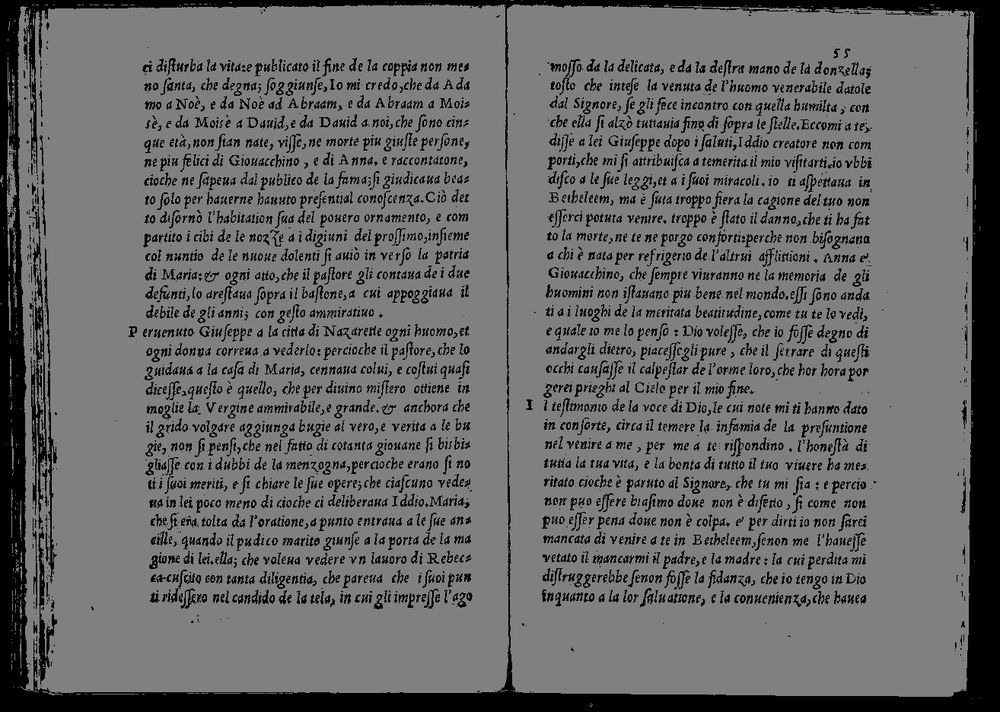 ci disturba la vita:e publicato il fine de la coppia non me=
no santa, che degna; soggiunse, Io mi credo, che da Ada
mo a Noè, e da Noè ad Abraam, e da Abraam a Moi=
sè, e da Moisè a Dauid, e da Dauid a noi, che sono cin=
que età, non sian nate, visse, ne morte piu giuste persone,
ne piu felici di Giouacchino, e di Anna. e raccontatone,
cioche ne sapeua dal publico de la fama; si giudicaua bea=
to solo per hauerne hauuto presential conoscenza. Ciò det
to disornò l'habitation sua del pouero ornamento, e com
partito i cibi de le nozze a i digiuni del prossimo, insieme
col nuntio de le nuoue dolenti si auiò in verso la patria
di Maria: & ogni atto, che il pastore gli contaua de i due
defunti, lo arestaua sopra il bastone, a cui appoggiaua il
debile de gli anni; con gesto ammiratiuo.
Peruenuto Giuseppe a la citta di Nazarette ogni huomo, et
ogni donna correua a vederlo: percioche il pastore, che lo
guidaua a la casa di Maria, cennaua colui, e costui quasi
dicesse, questo è quello, che per diuino mistero ottiene in
moglie la Vergine ammirabile, e grande. & anchora che
il grido volgare aggiunga bugie al vero, e verita a le bu
gie, non si pensi, che nel fatto di cotanta giouane si bisbi=
gliasse con i dubbi de la menzogna, percioche erano si no
ti i suoi meriti, e si chiare le sue opere; che ciascuno vede=
ua in lei poco meno di cioche ci deliberaua Iddio. Maria,
che si era tolta da l'oratione, a punto entraua a le sue an=
cille, quando il pudico marito giunse a la porta de la ma
gione di lei. ella; che voleua vedere vn lauoro di Rebec=
ca cuscito con tanta diligentia, che pareua che i suoi pun
ti ridessero nel candido de la tela, in cui gli impresse l'ago
55
mosso da la delicata, e da la destra mano de la donzella;
tosto che intese la venuta de l'huomo venerabile datole
dal Signore, se gli fece incontro con quella humilta, con
che ella si alzò tuttauia fino di sopra le stelle. Eccomi a te,
disse a lei Giuseppe dopo i saluti, Iddio creatore non com
porti, che mi si attribuisca a temerita il mio visitarti. io vbbi
disco a le sue leggi, et a i suoi miracoli. io ti aspettaua in
Betheleem, ma è suta troppo fiera la cagione del tuo non
esserci potuta venire. troppo è stato il danno, che ti ha fat
to la morte, ne te ne porgo conforti: perche non bisognana
a chi è nata per refrigerio de l'altrui afflittioni. Anna e
Giouacchino, che sempre viuranno ne la memoria de gli
huomini non istauano piu bene nel mondo. essi sono anda
ti a i luoghi de la meritata beatitudine, come tu te lo vedi,
e quale io me lo penso: Dio volesse, che io fosse degno di
andargli dietro, piacessegli pure, che il serrare di questi
occhi causasse il calpestar de l'orme loro, che hor hora por
gerei prieghi al Cielo per il mio fine.
Il testimonio de la voce di Dio, le cui note mi ti hanno dato
in consorte, circa il temere la infamia de la presuntione
nel venire a me, per me a te rispondino. l'honestà di
tutta la tua vita, e la bonta di tutto il tuo viuere ha me=
ritato cioche è paruto al Signore, che tu mi sia: e percio
non puo essere biasimo doue non è difetto, si come non
puo esser pena doue non è colpa. e per dirti io non sarei
mancata di venire a te in Betheleem, senon me l'hauesse
vetato il mancarmi il padre, e la madre: la cui perdita mi
distruggerebbe senon fosse la fidanza, che io tengo in Dio
inquanto a la lor saluatione, e la conuenienza, che hauea